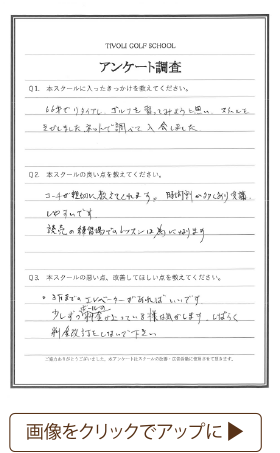 TIVOLI GOLF SCHOOL
アンケート調査
Q1. 本スクールに入ったきっかけを教えてください。
ゴルフを習してみようと思い
さがしました ネットで調べて入会しました
Q2. 本スクールの良い点を教えてください。
コーチが親切に教えてくれます。時間割が多くあり受講
しやすいです
読売の練習場でのレッスンは為になります
Q3. 本スクールの悪い点、改善してほしい点を教えてください。
• 3階までのエレベーターがあればいいです
少しずつ料金が上っている様な気がします、しばらく
料金改訂をしないで下さい
ご協力ありがとうございました。
画像をクリックでアップに▶